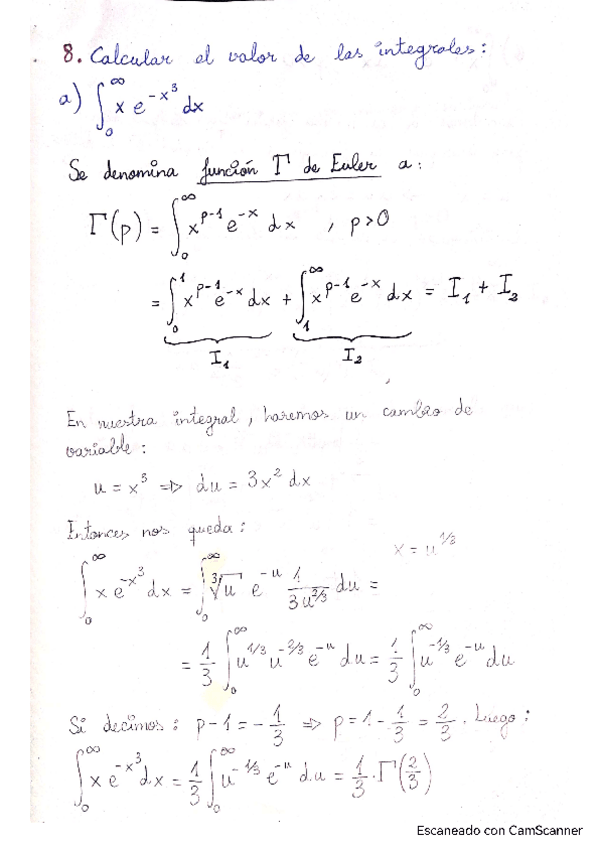 8. Calcular el valor de las integrales:
a) ∫₀^∞ x e^{-x³} dx
Se denomina función Γ de Euler a:
Γ(p) = ∫₀^∞ x^{p-1} e^{-x} dx , p>0
= ∫₀^1 x^{p-1} e^{-x} dx + ∫₁^∞ x^{p-1} e^{-x} dx = I₁ + I₂
I₁ I₂
En nuestra integral, haremos un cambio de
variable:
u = x³ => du = 3x² dx
Entonces nos queda:
x = u^{1/3}
∫₀^∞ x e^{-x³} dx = ∫₀^∞ ∛u e^{-u} 1/(3u^{2/3}) du =
= 1/3 ∫₀^∞ u^{1/3} u^{-2/3} e^{-u} du = 1/3 ∫₀^∞ u^{-1/3} e^{-u} du
Si decimos: p-1 = -1/3 => p = 1 - 1/3 = 2/3. Luego:
∫₀^∞ x e^{-x³} dx = 1/3 ∫₀^∞ u^{-1/3} e^{-u} du = 1/3 · Γ(2/3)
Escaneado con CamScanner